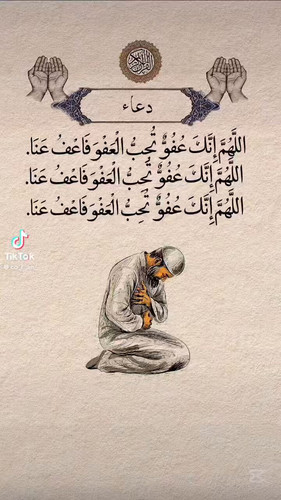 دعاء
اللَّهُمَّ إِنَّكَ عُفُوٌّ تُحِبُّ الْعَفْوَ فَاعْفُ عَنَا.
اللَّهُمَّ إِنَّكَ عُفُوٌّ تُحِبُّ الْعَفْوَ فَاعْفُ عَنَا.
اللَّهُمَّ إِنَّكَ عُفُوٌّ تُحِبُّ الْعَفْوَ فَاعْفُ عَنَا.
TikTok